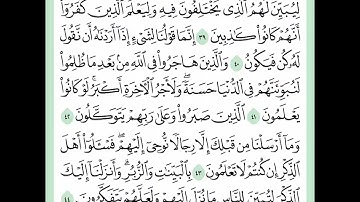 لِيُبَيِّنَ لَهُمُ ٱلَّذِى يَخْتَلِفُونَ فِيهِ وَلِيَعْلَمَ ٱلَّذِينَ كَفَرُوٓا۟
أَنَّهُمْ كَانُوا۟ كَٰذِبِينَ ٣٩ إِنَّمَا قَوْلُنَا لِشَىْءٍ إِذَآ أَرَدْنَٰهُ أَن نَّقُولَ
لَهُۥ كُن فَيَكُونُ ٤٠ وَٱلَّذِينَ هَاجَرُوا۟ فِى ٱللَّهِ مِنۢ بَعْدِ مَا ظُلِمُوا۟
لَنُبَوِّئَنَّهُمْ فِى ٱلدُّنْيَا حَسَنَةً وَلَأَجْرُ ٱلْءَاخِرَةِ أَكْبَرُ لَوْ كَانُوا۟
يَعْلَمُونَ ٤١ ٱلَّذِينَ صَبَرُوا۟ وَعَلَىٰ رَبِّهِمْ يَتَوَكَّلُونَ ٤٢
وَمَآ أَرْسَلْنَا مِن قَبْلِكَ إِلَّا رِجَالًا نُّوحِىٓ إِلَيْهِمْ فَسْـَٔلُوٓا۟ أَهْلَ
ٱلذِّكْرِ إِن كُنتُمْ لَا تَعْلَمُونَ ٤٣ بِٱلْبَيِّنَٰتِ وَٱلزُّبُرِ وَأَنزَلْنَآ إِلَيْكَ
ٱلذِّكْرَ لِتُبَيِّنَ لِلنَّاسِ مَا نُزِّلَ إِلَيْهِمْ وَلَعَلَّهُمْ يَتَفَكَّرُونَ ٤٤